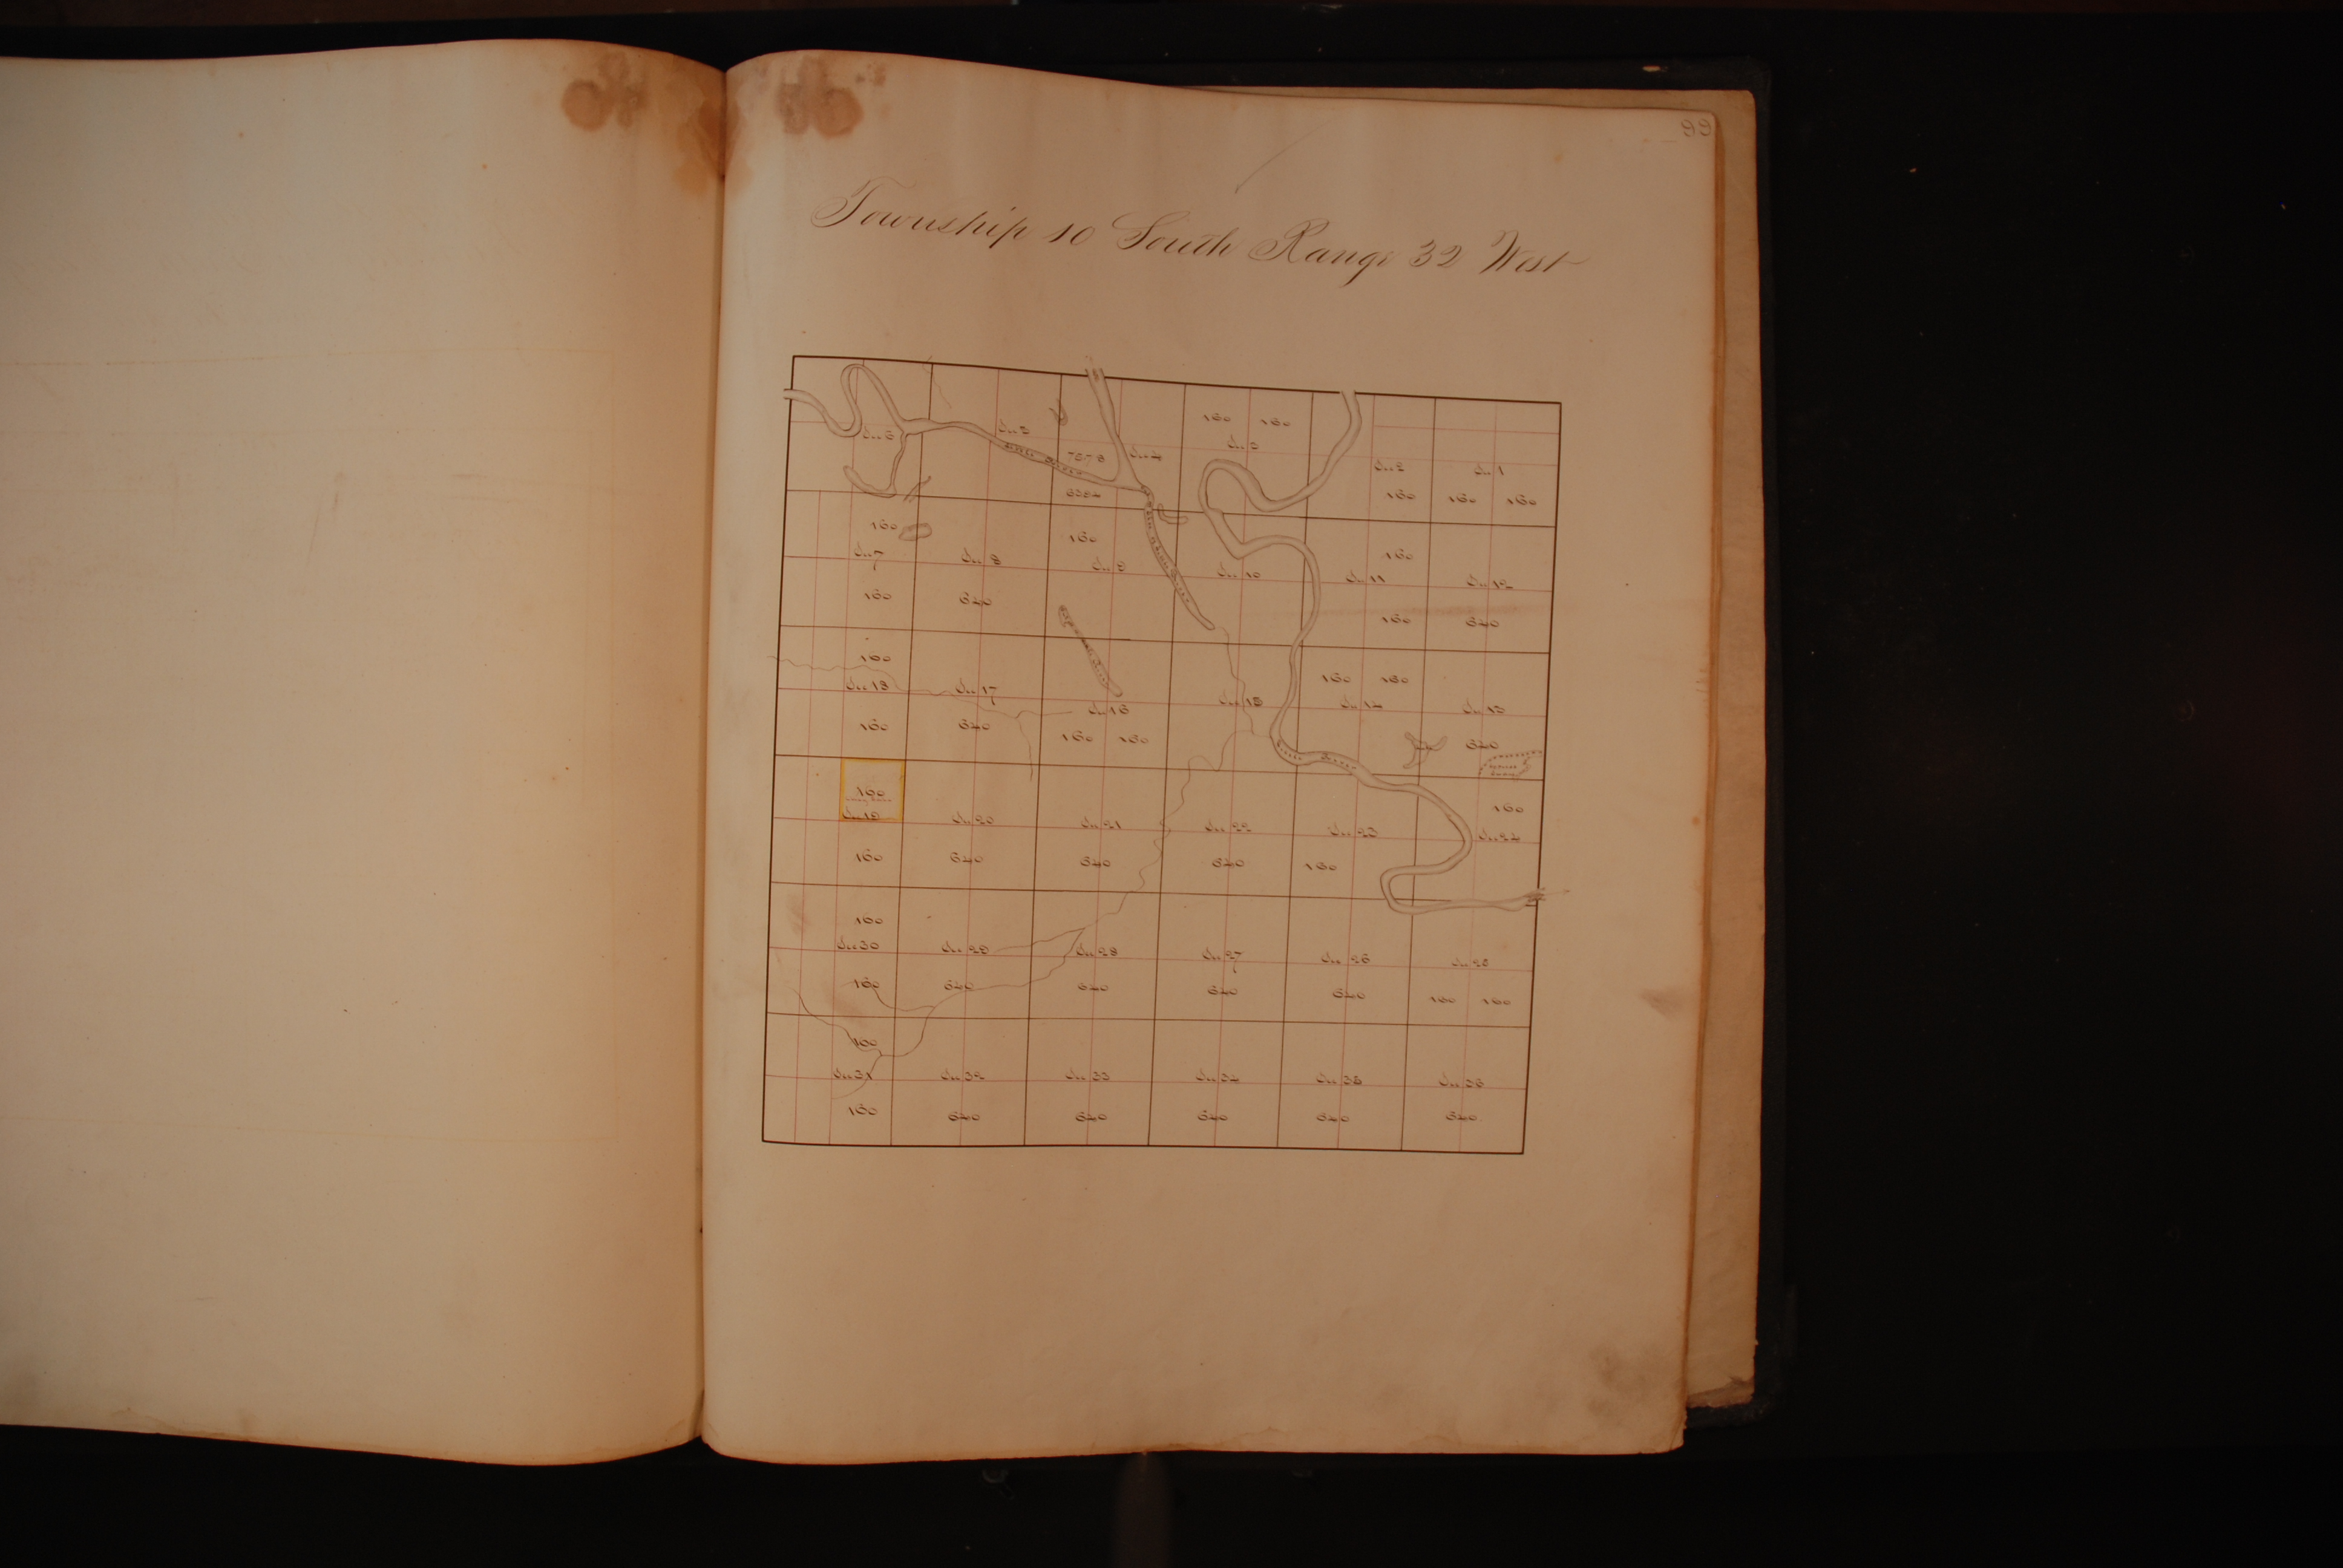 99
Township 10 South Range 32 West
160 160
Sec 6 Sec 5 Sec 4 Sec 3 Sec 2 Sec 1
160 160 160
160 160 160
Sec 7 Sec 8 Sec 9 Sec 10 Sec 11 Sec 12
160 640 160 640
160 160 160
Sec 18 Sec 17 Sec 16 Sec 15 Sec 14 Sec 13
160 640 160 160 640
160 160
Sec 19 Sec 20 Sec 21 Sec 22 Sec 23 Sec 24
160 640 640 640 160
160
Sec 30 Sec 29 Sec 28 Sec 27 Sec 26 Sec 25
160 640 640 640 640 160 160
160
Sec 31 Sec 32 Sec 33 Sec 34 Sec 35 Sec 36
160 640 640 640 640 640